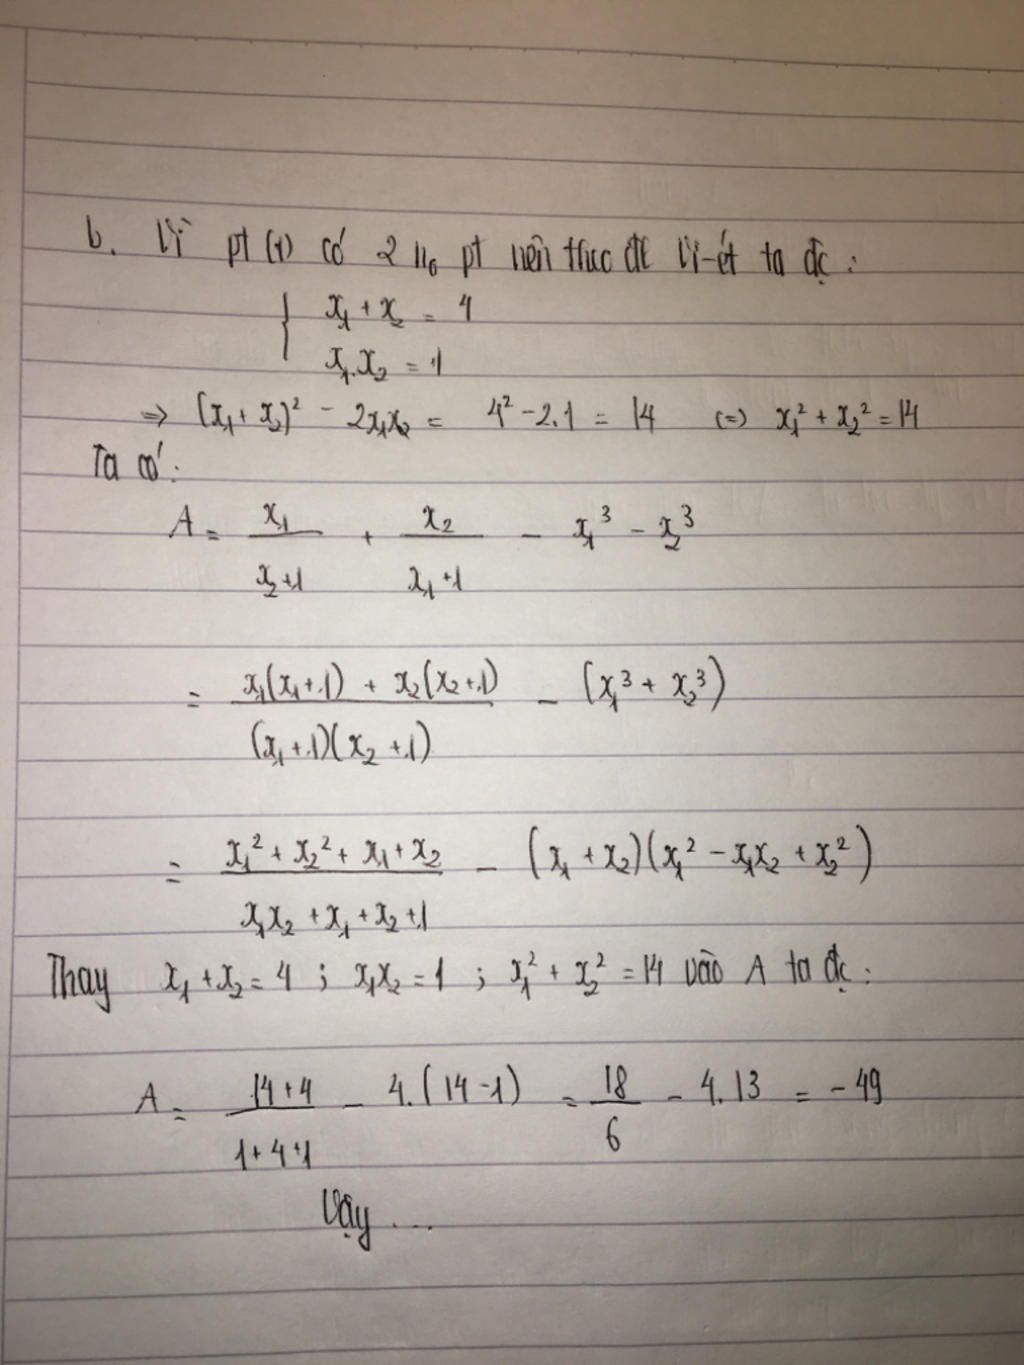 b. Vì pt (1) có 2 no pt nên theo đl Vi-ét ta đc :
{ x₁ + x₂ = 4
x₁.x₂ = 1
=> (x₁ + x₂)² - 2x₁x₂ = 4² - 2.1 = 14 (=) x₁² + x₂² = 14
Ta có :
A = x₁/(x₂+1) + x₂/(x₁+1) - x₁³ - x₂³
= (x₁(x₁+1) + x₂(x₂+1))/((x₁+1)(x₂+1)) - (x₁³ + x₂³)
= (x₁² + x₂² + x₁ + x₂)/(x₁x₂ + x₁ + x₂ + 1) - (x₁ + x₂)(x₁² - x₁x₂ + x₂²)
Thay x₁ + x₂ = 4 ; x₁x₂ = 1 ; x₁² + x₂² = 14 vào A ta đc :
A = (14+4)/(1+4+1) - 4.(14-1) = 18/6 - 4.13 = -49
Vậy ...